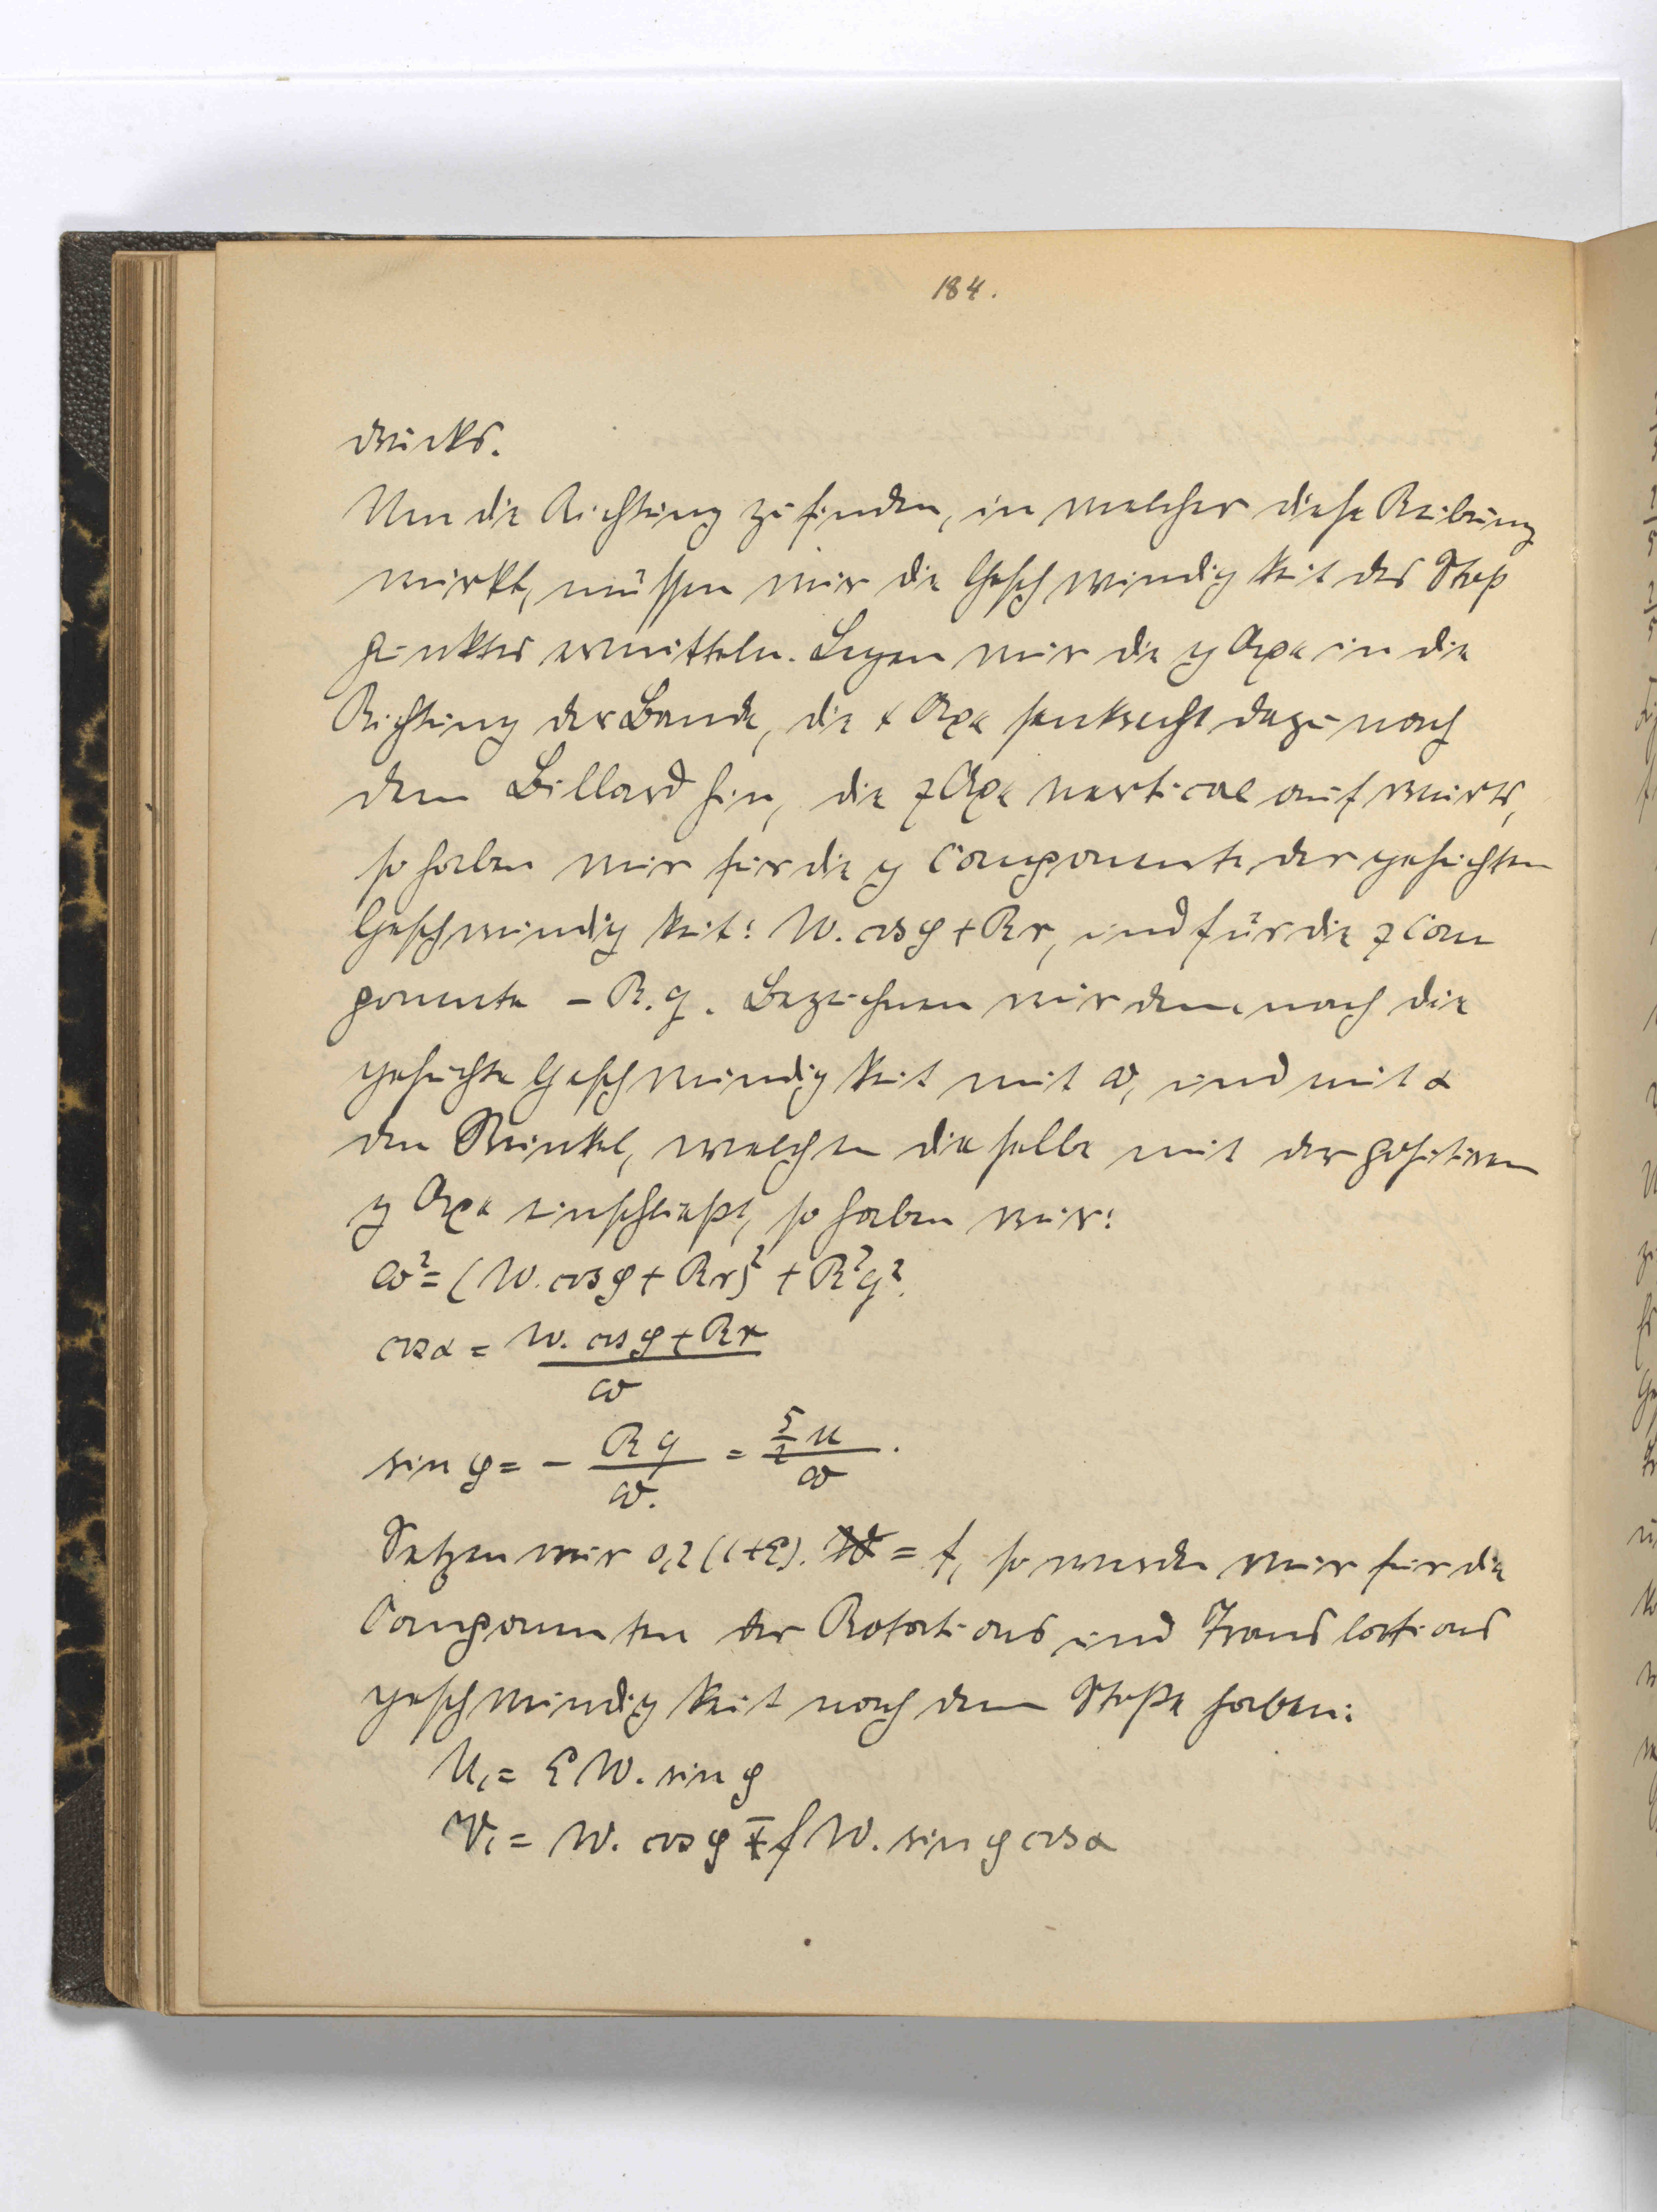 184.
drucks.
Um die Richtung zu finden, in welcher diese Reibung
wirkt, müssen wir die Geschwindigkeit des Stoß
punktes ermitteln. Legen wir die y Axe in die
Richtung der Bande, die x Axe senkrecht dazu nach
dem Billard hin, die z Axe vertical aufwärts,
so haben wir für die y Componente der gesuchten
Geschwindigkeit: W. cos φ + Rr, und für die z Com
ponente – R.q. Bezeichnen wir demnach die
gesuchte Geschwindigkeit mit ω, und mit α
den Winkel, welchen dieselbe mit der positiven
y Axe einschließt, so haben wir:
ω² = (W. cos φ + Rr)² + R²q².
cos α = (W. cos φ + Rr) / ω
sin φ = – Rq / ω. = 5/2 u / ω.
Setzen wir 0,2 (1+ε). = f, so werden wir für die
Componenten der Rotations und Translations
geschwindigkeit nach dem Stoße haben:
U₁ = εW. sin φ
V₁ = W. cos φ ∓ f W. sin φ cos α